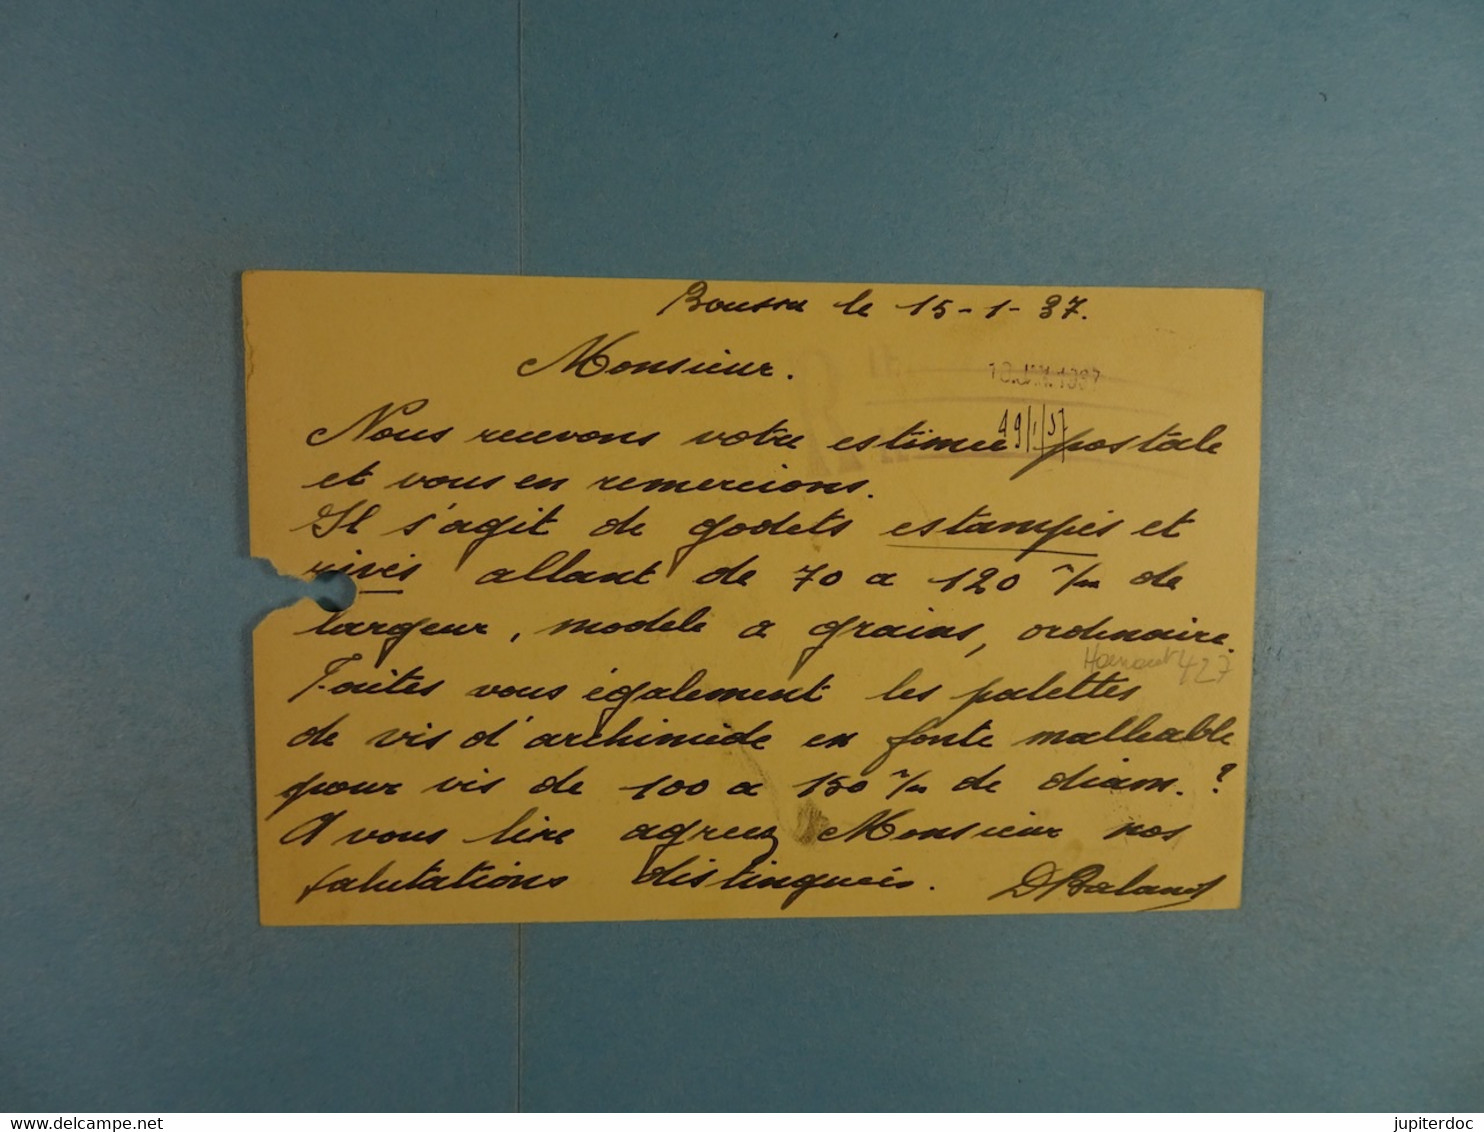 Boussu le 15-1-37.
Monsieur.
JAN. 1937
19/1/37
Nous recevons votre estimée postale
et vous en remercions.
Il s'agit de godets estampés et
rivés allant de 70 a 120 m/m de
largeur, modele a grains, ordinaire.
Hainaut 427
Faites vous également les palettes
de vis d'archimède en fonte malleable
pour vis de 100 a 150 m/m de diam.?
A vous lire agreez Monsieur nos
salutations distinguées. D Baland
www.delcampe.net
jupiterdoc